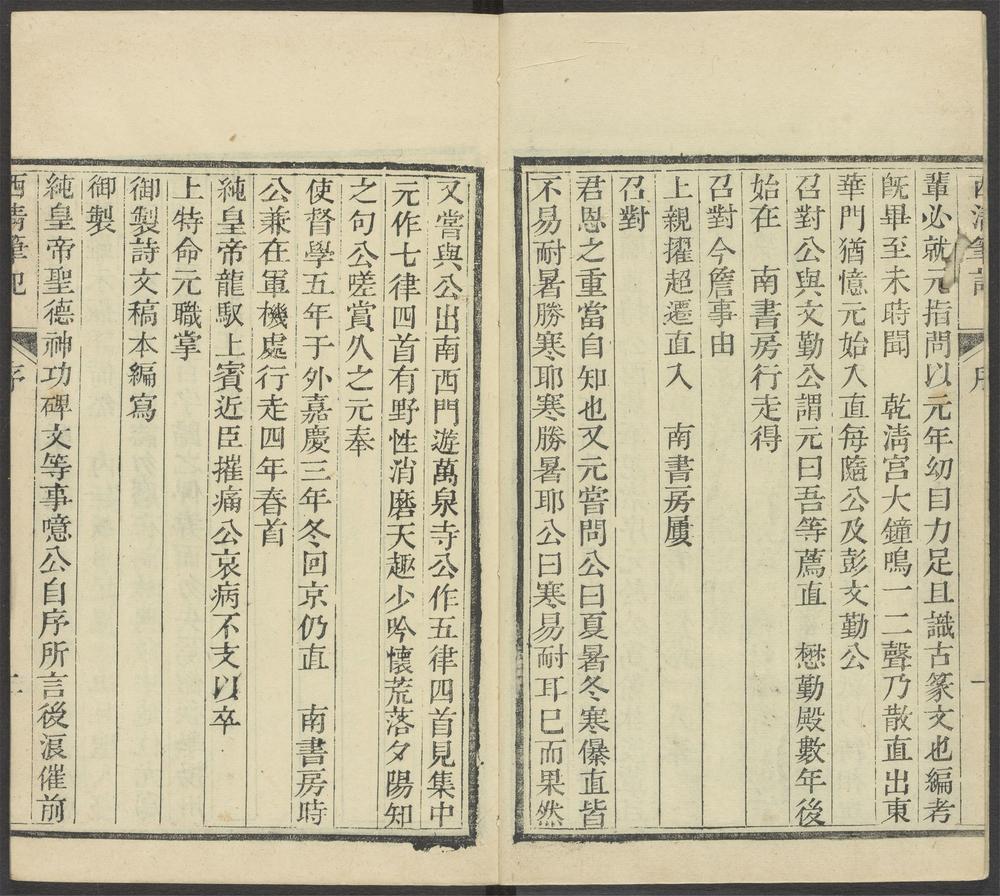 西清筆記
序
一
輩必就元指問以元年幼目力足且識古篆文也編考
旣畢至未時聞　乾淸宮大鐘鳴一二聲乃散直出東
華門猶憶元始入直每隨公及彭文勤公
召對公與文勤公謂元曰吾等薦直　懋勤殿數年後
始在　南書房行走得
召對今詹事由
上親擢超遷直入　南書房屢
召對
君恩之重當自知也又元嘗問公曰夏暑冬寒儤直皆
不易耐暑勝寒耶寒勝暑耶公曰寒易耐耳已而果然
又嘗與公出南西門遊萬泉寺公作五律四首見集中
元作七律四首有野性消磨天趣少吟懷荒落夕陽知
之句公嗟賞久之元奉
使督學五年于外嘉慶三年冬回京仍直　南書房時
公兼在軍機處行走四年春首
純皇帝龍馭上賓近臣摧痛公哀病不支以卒
上特命元職掌
御製詩文稿本編寫
御製
純皇帝聖德神功碑文等事噫公自序所言後滾催前
西清筆記
序
二